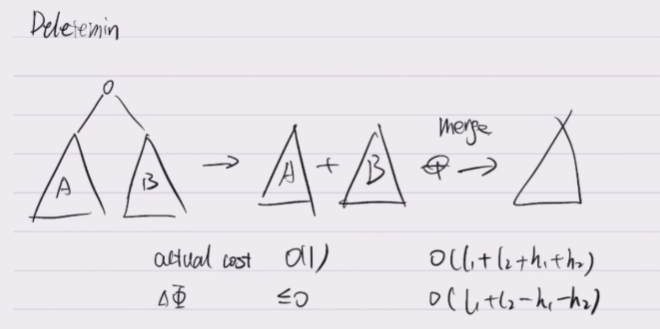 Deletemin
O
merge
A B → A + B ⊕ →
actual cost O(1) O(l₁+l₂+h₁+h₂)
ΔΦ ≤0 O(l₁+l₂-h₁-h₂)